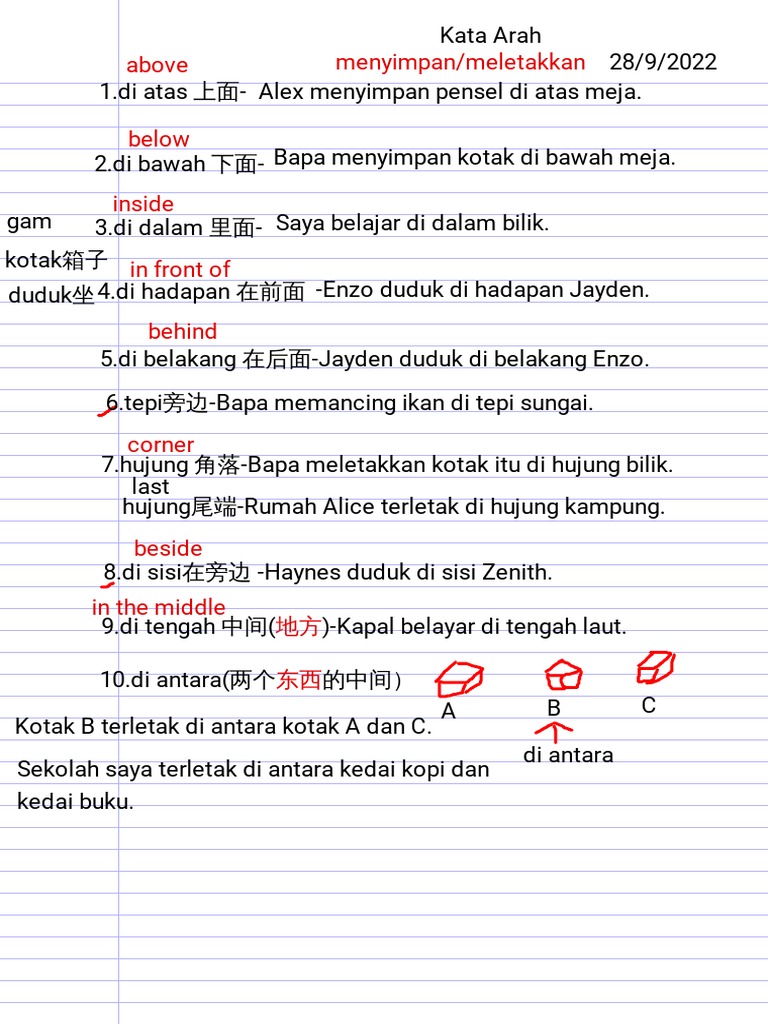 Kata Arah
above
menyimpan/meletakkan 28/9/2022
1.di atas 上面- Alex menyimpan pensel di atas meja.
below
2.di bawah 下面- Bapa menyimpan kotak di bawah meja.
inside
gam 3.di dalam 里面- Saya belajar di dalam bilik.
kotak箱子
in front of
duduk坐 4.di hadapan 在前面 -Enzo duduk di hadapan Jayden.
behind
5.di belakang 在后面-Jayden duduk di belakang Enzo.
6.tepi旁边-Bapa memancing ikan di tepi sungai.
corner
7.hujung 角落-Bapa meletakkan kotak itu di hujung bilik.
last
hujung尾端-Rumah Alice terletak di hujung kampung.
beside
8.di sisi在旁边 -Haynes duduk di sisi Zenith.
in the middle
9.di tengah 中间(地方)-Kapal belayar di tengah laut.
10.di antara(两个东西的中间）
A B C
Kotak B terletak di antara kotak A dan C.
di antara
Sekolah saya terletak di antara kedai kopi dan
kedai buku.